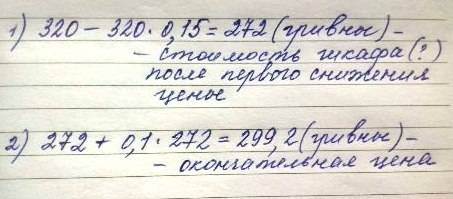 1) 320 - 320 · 0,15 = 272 (гривны) -
- стоимость шкафа (?)
после первого снижения
цены
2) 272 + 0,1 · 272 = 299,2 (гривны) -
- окончательная цена